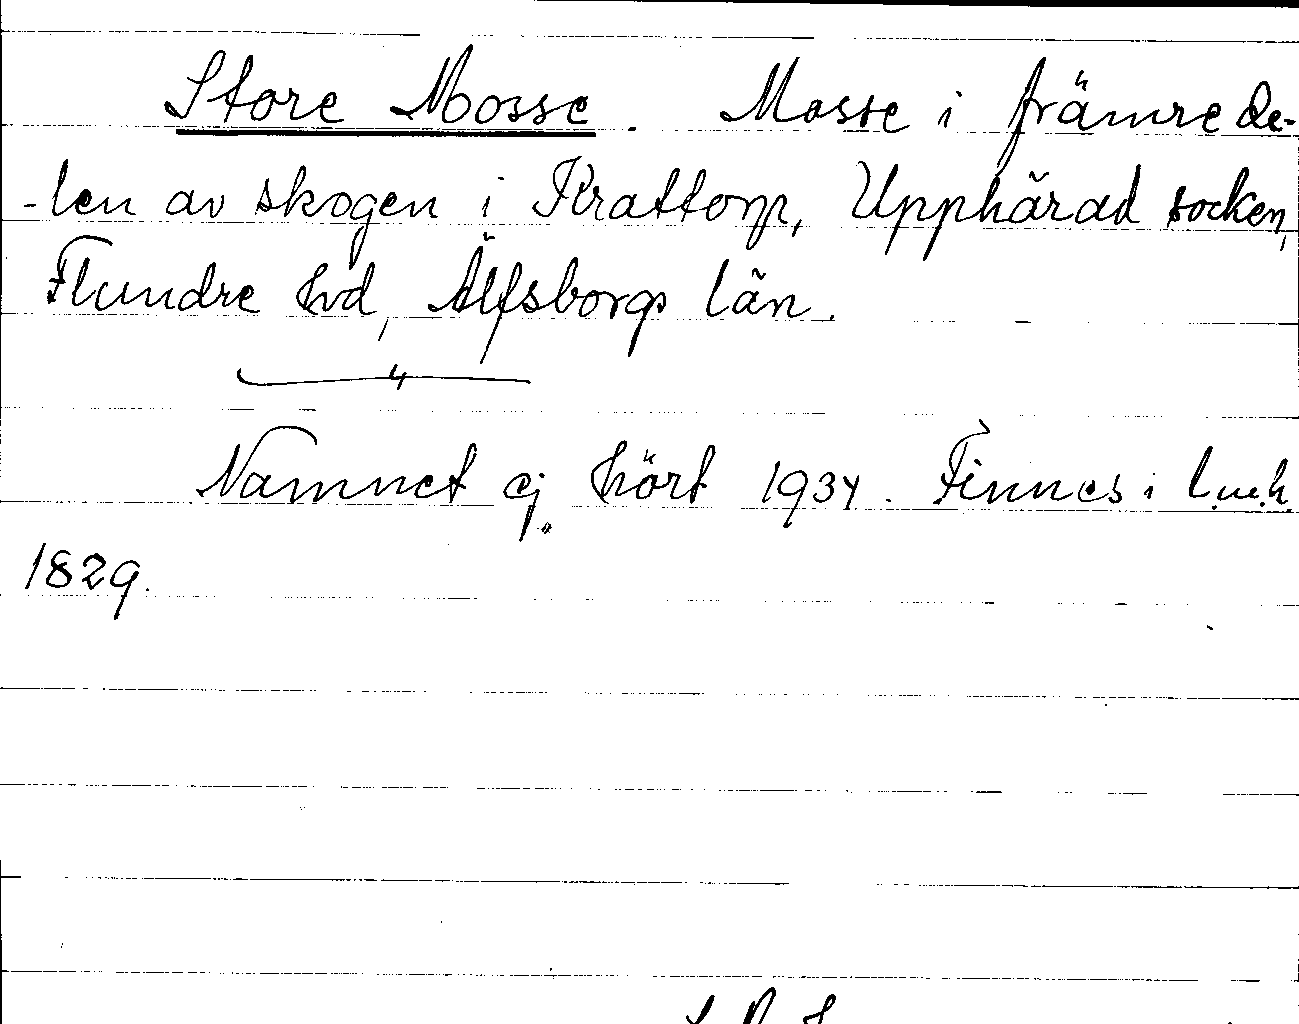 Store Mosse. Mosse i främre de-
-len av skogen i Krattorp, Upphärad socken,
Flundre hd, Älfsborgs län.
Namnet ej hört 1934. Finnes i l.u.h.
1829.